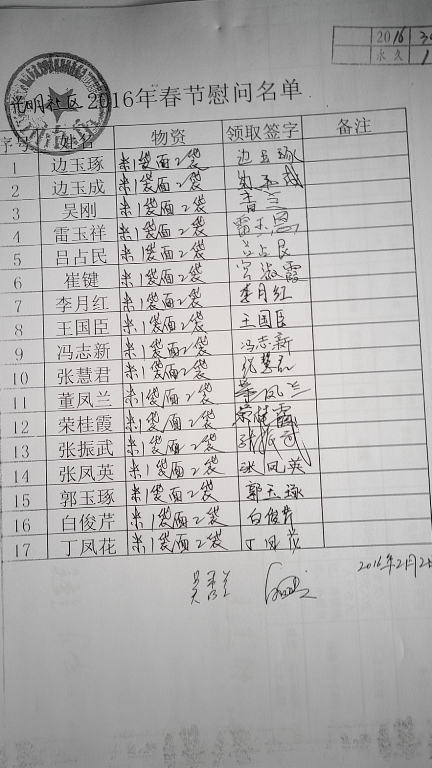 2016
永久 1
光明社区 2016年春节慰问名单
序号 姓名 物资 领取签字 备注
1 边玉琢 米1袋面2袋 边玉琢
2 边玉成 米1袋面2袋 边玉成
3 吴刚 米1袋面2袋
4 雷玉祥 米1袋面2袋 雷玉恩
5 吕占民 米1袋面2袋 吕占民
6 崔键 米1袋面2袋 宫淑霞
7 李月红 米1袋面2袋 李月红
8 王国臣 米1袋面2袋 王国臣
9 冯志新 米1袋面2袋 冯志新
10 张慧君 米1袋面2袋 张慧君
11 董凤兰 米1袋面2袋 董凤兰
12 荣桂霞 米1袋面2袋 荣桂霞
13 张振武 米1袋面2袋 张振武
14 张凤英 米1袋面2袋 张凤英
15 郭玉琢 米1袋面2袋 郭玉琢
16 白俊芹 米1袋面2袋 白俊芹
17 丁凤花 米1袋面2袋 丁凤花
2016年2月2